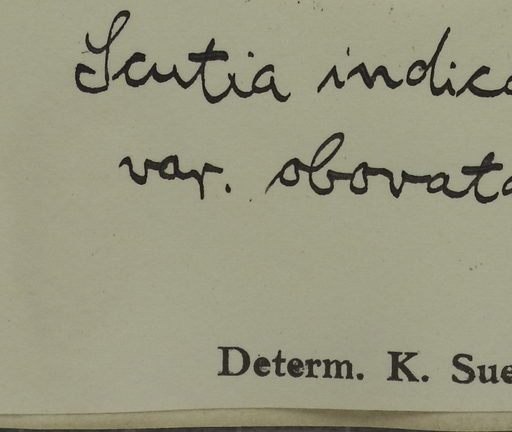 Scutia indica
var. obovata
Determ. K. Sue